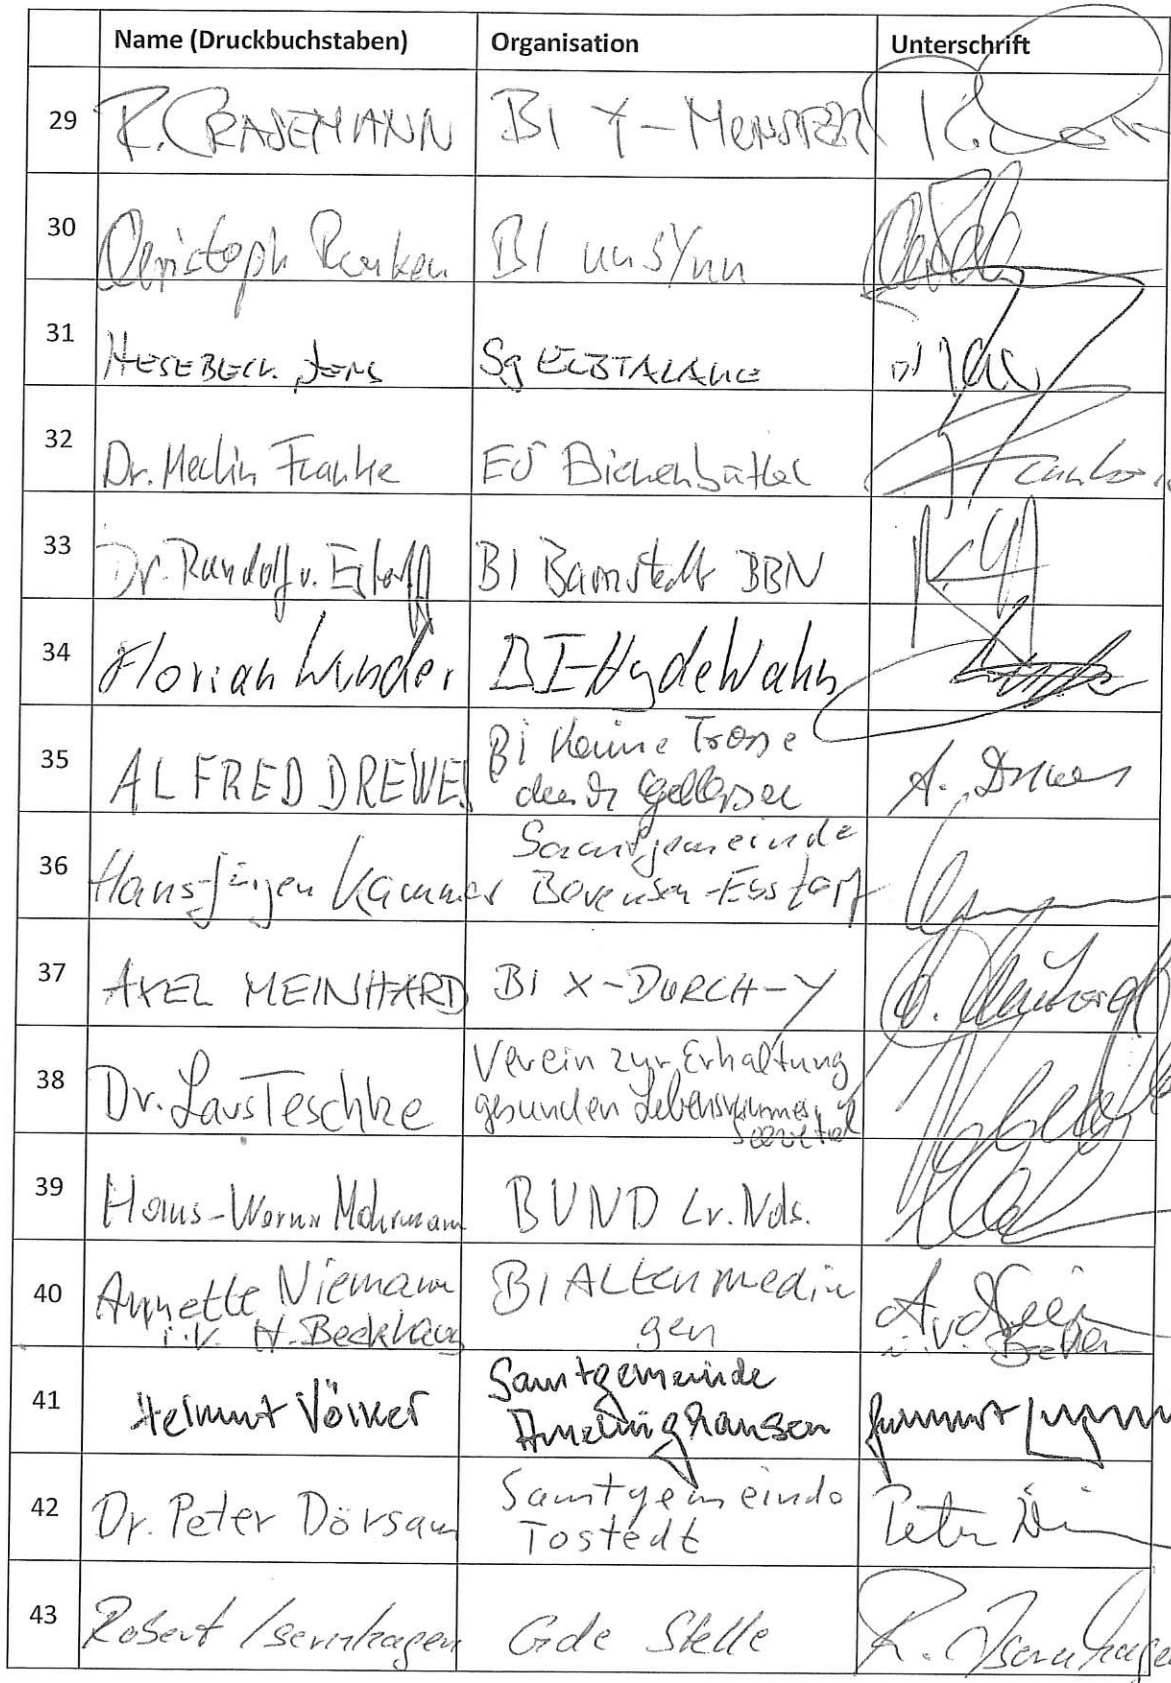 Name (Druckbuchstaben) Organisation Unterschrift
29 R. CRASEMANN BI Y-MONSTER
30 Christoph BI unsYnn
31 HESEBECK, JENS Sg ELBTALAUE
32 Dr. Merlin Franke EÖ Bienenbüttel
33 Dr. Randolf v. Estorff BI Barnstedt BBN
34 Florian Wunder BI-HydeWahn
35 ALFRED DREWES BI Keine Trasse A. Drewes
durch Gellersen
36 Hans-Jürgen Kammer Samtgemeinde
Bevensen-Ebstorf
37 AXEL MEINHARD BI X-DURCH-Y
38 Dr. Lars Teschke Verein zur Erhaltung
gesunden Lebensraumes,
Seevetal
39 Hans-Werner Mohrmann BUND Lv. Nds.
40 Annette Niemann BI Altenmedin
i.V. H. Beckhaus gen i.V.
41 Helmut Völker Samtgemeinde
Amelinghausen
42 Dr. Peter Dörsam Samtgemeinde Peter
Tostedt
43 Robert Isernhagen Gde Stelle R. Isernhagen